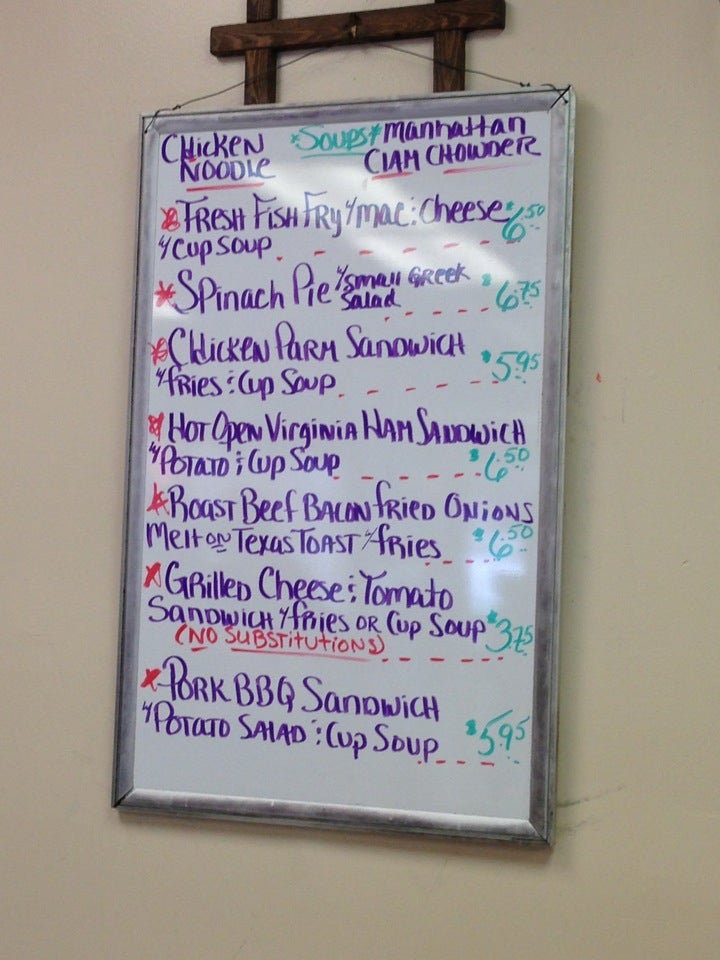 CHicken *Soups* Manhattan
NOODLE CLAM CHOWDER
* FRESH FISH FRY w/ mac & cheese $6.50
w/ Cup SOUP
* Spinach Pie w/ small GREEK $6.75
Salad
* CHicken PARM Sandwich $5.95
w/ fries & Cup Soup
* Hot Open Virginia HAM SANDWICH
w/ POTATO & Cup Soup $6.50
* Roast Beef BACON fried Onions
Melt on Texas TOAST w/ fries $6.50
* Grilled Cheese & Tomato
Sandwich w/ fries OR Cup Soup $3.75
(NO SUBSTITUTIONS)
* PORK BBQ Sandwich
w/ POTATO SALAD & Cup Soup $5.95